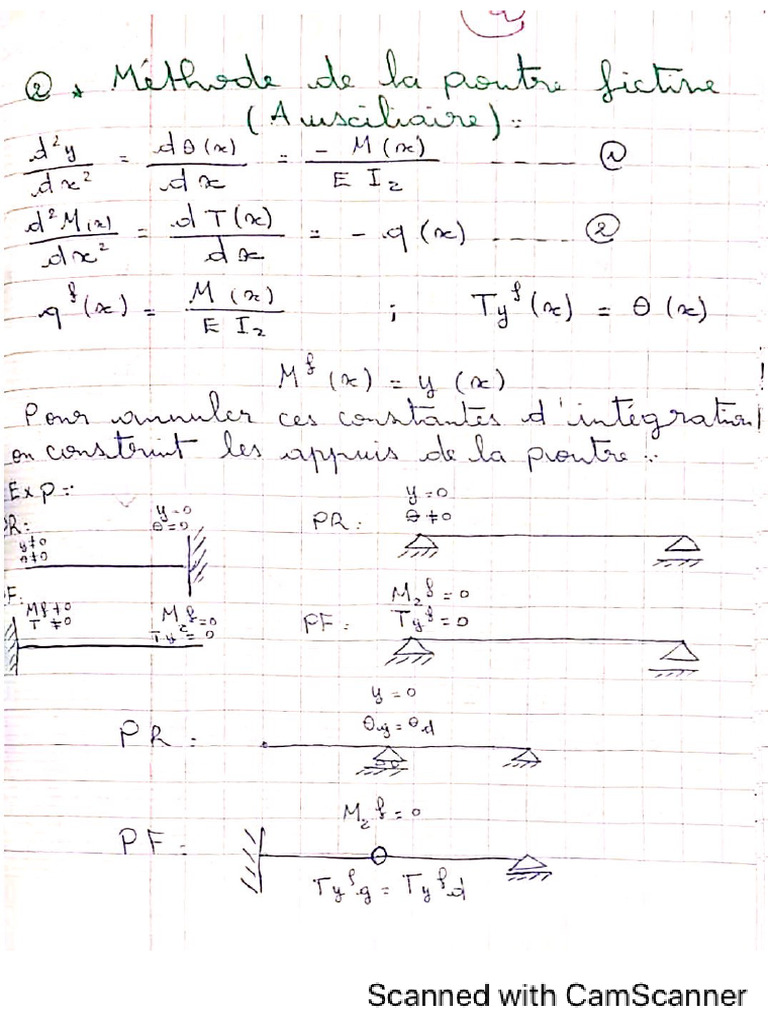 ② * Méthode de la poutre fictive
(Auxsciliaire) :
d²y/dx² = dθ(x)/dx = - M(x)/E I₂ ------ ①
d²M(x)/dx² = dT(x)/dx = - q(x) ------ ②
qᶠ(x) = M(x)/E I₂ ; Tyᶠ(x) = θ(x)
Mᶠ(x) = y(x) !
Pour annuler ces constantes d'intégration
on construit les appuis de la poutre :
Exp :
y=0
y=0
θ=0
PR:
θ≠0
R:
y≠0
θ≠0
F.
Mf≠0
T≠0
M₂f=0
Ty=0
PF:
M₂f=0
Tyf=0
y=0
PR:
θg=θd
M₂f=0
PF:
Tyᶠg = Tyᶠd
Scanned with CamScanner